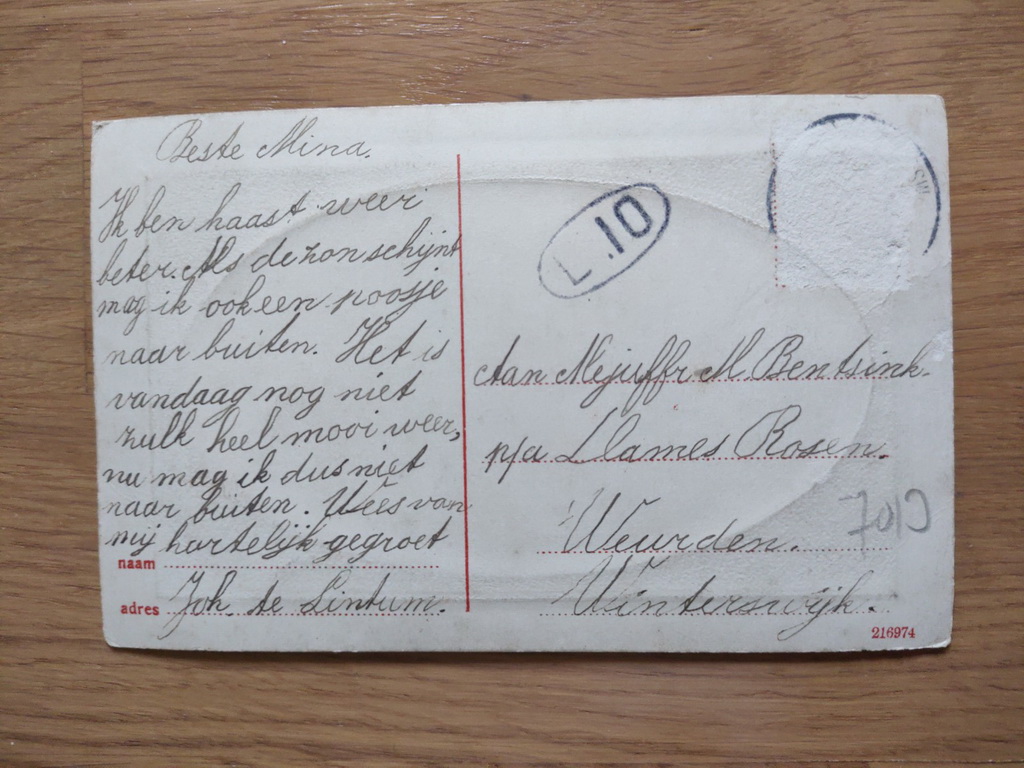 Beste Mina.
Ik ben haast weer
beter. Als de zon schijnt
mag ik ook een poosje
naar buiten. Het is
vandaag nog niet
zulk heel mooi weer,
nu mag ik dus niet
naar buiten. Wees van
mij hartelijk gegroet
naam
adres Joh. te Lintum.
L. 10
Aan Mejuffr M Bentsink.
p/a Llames Rosen.
Weurden.
Winterswijk.
216974